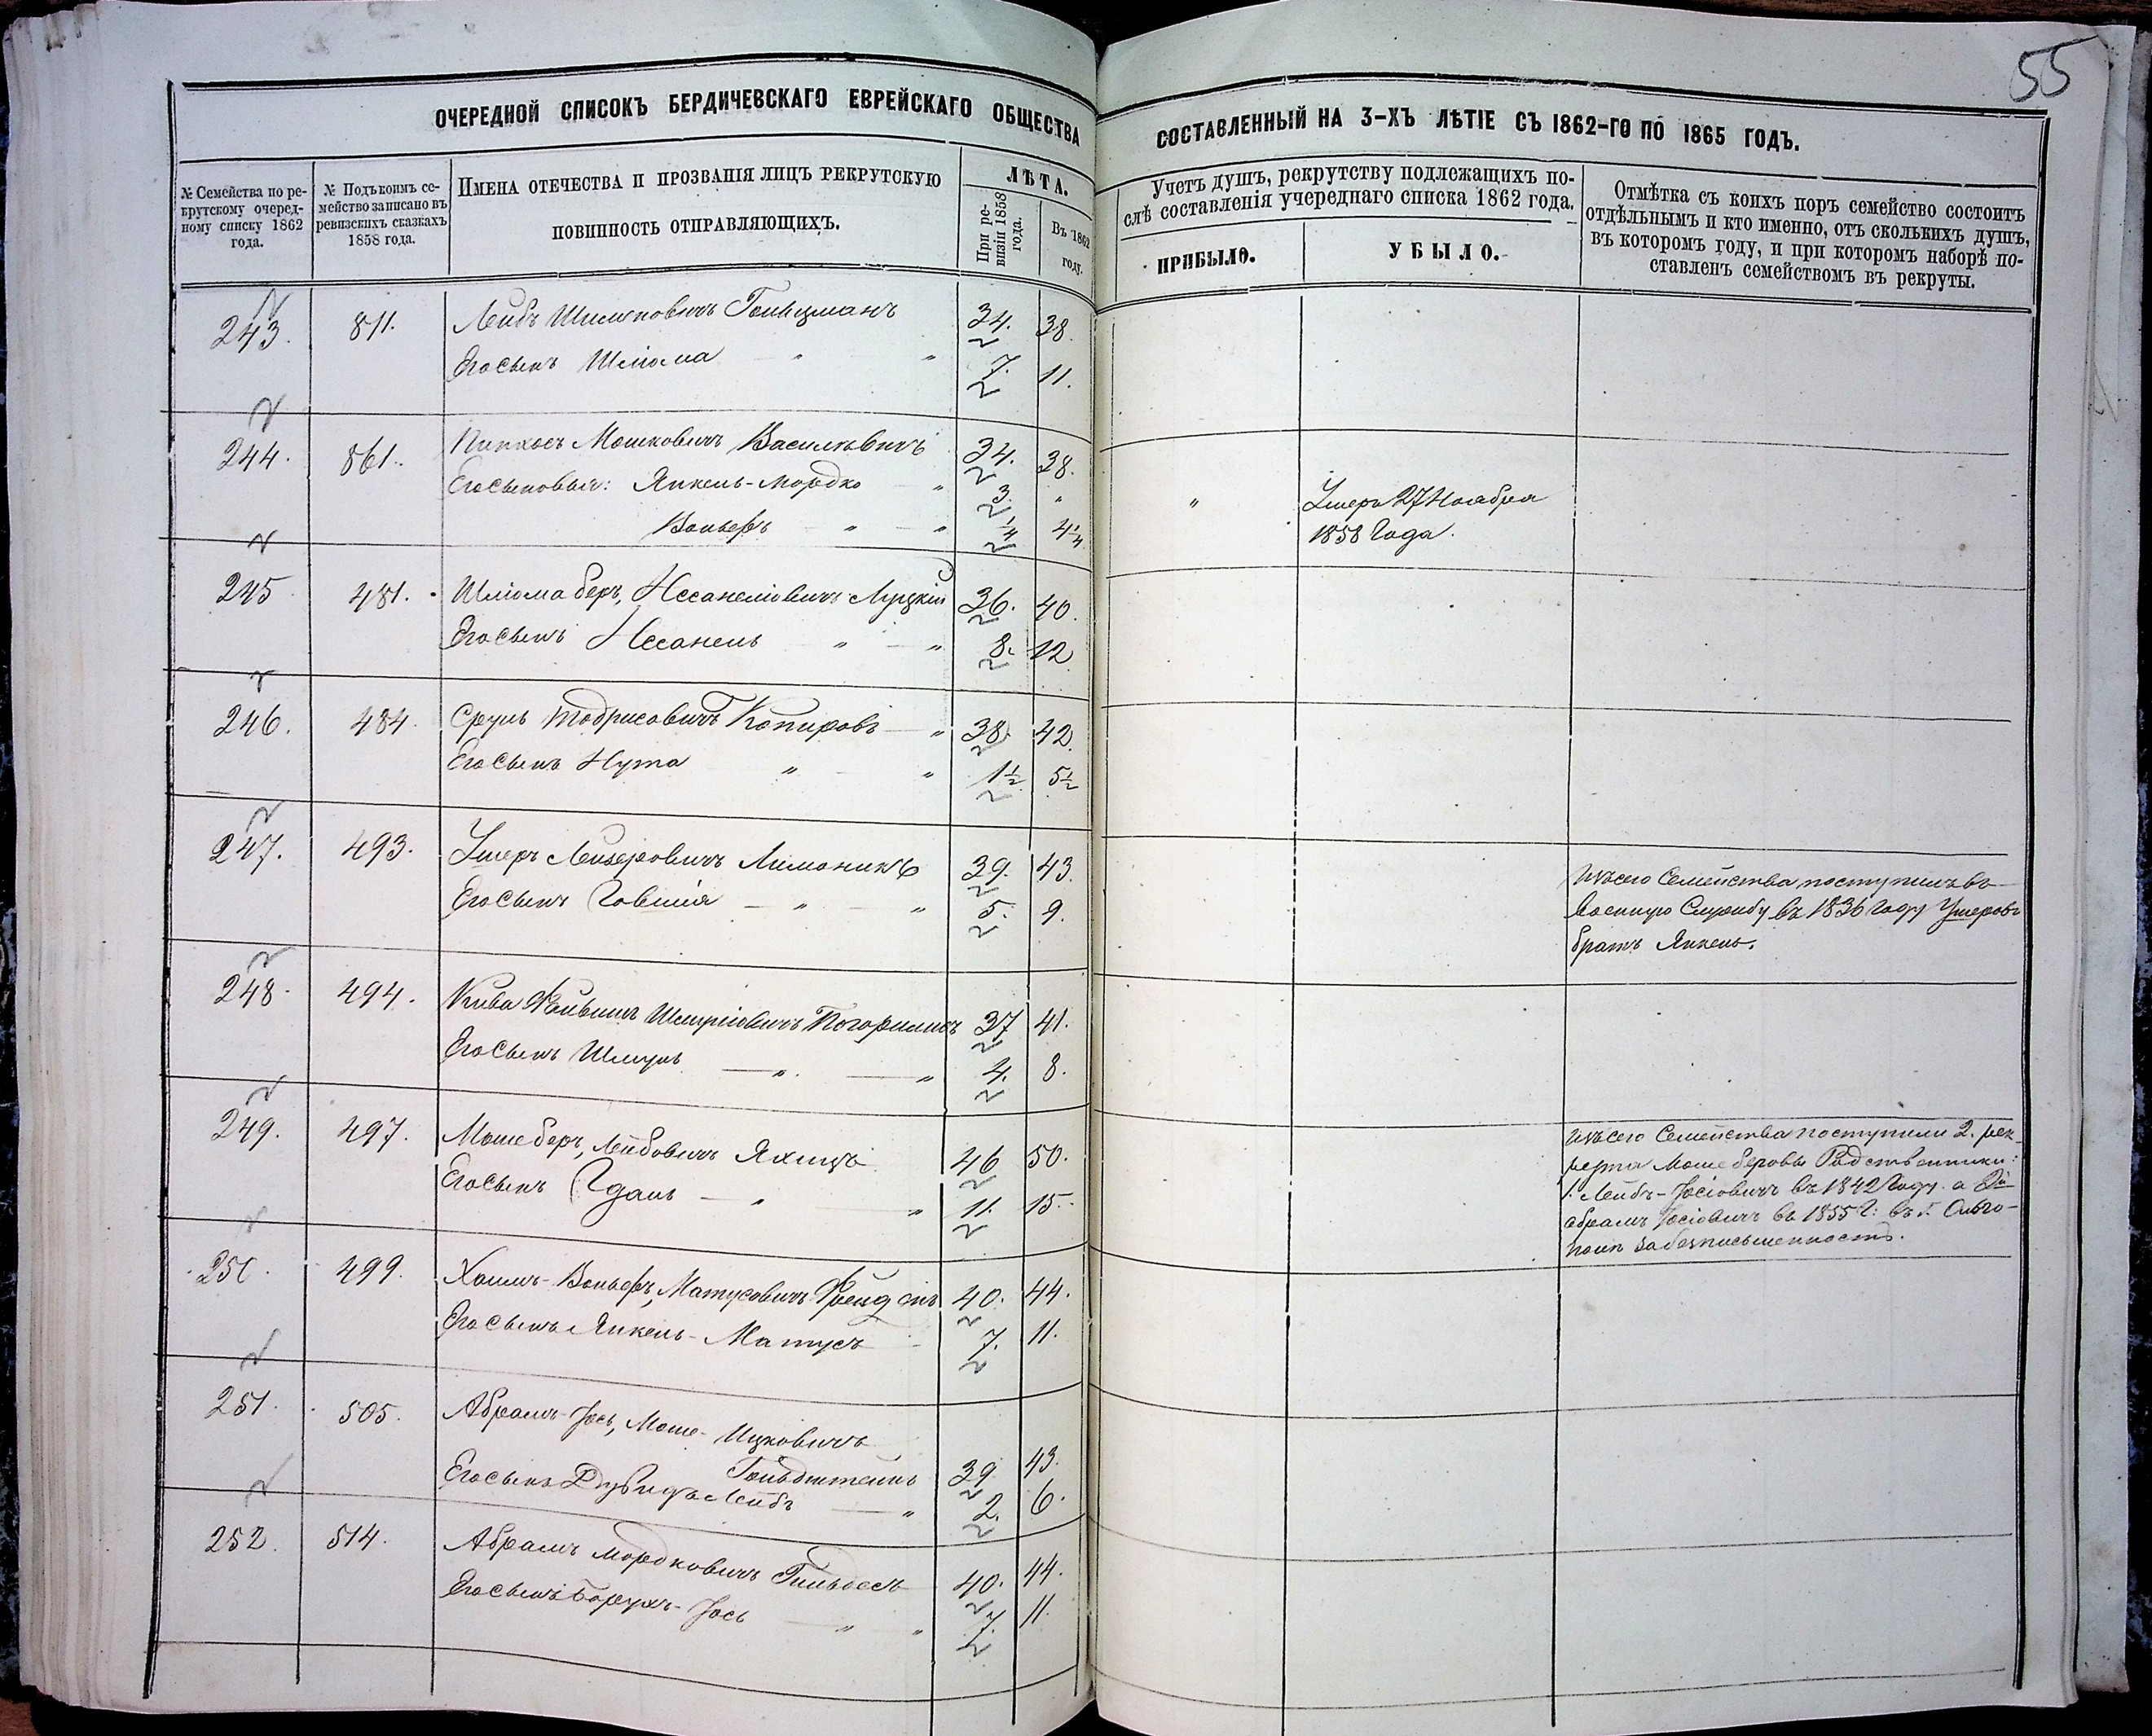 55
ОЧЕРЕДНОЙ СПИСОКЪ БЕРДИЧЕВСКАГО ЕВРЕЙСКАГО ОБЩЕСТВА
СОСТАВЛЕННЫЙ НА 3-ХЪ ЛѢТІЕ СЪ 1862-ГО ПО 1865 ГОДЪ.
№ Семейства по ре-
крутскому очеред-
ному списку 1862
года.
№ Подъ коимъ се-
мейство записано въ
ревизскихъ сказкахъ
1858 года.
ИМЕНА ОТЕЧЕСТВА И ПРОЗВАНІЯ ЛИЦЪ РЕКРУТСКУЮ
ПОВИННОСТЬ ОТПРАВЛЯЮЩИХЪ.
ЛѢТА.
При ре-
визіи 1858
года.
Въ 1862
году.
Учетъ душъ, рекрутству подлежащихъ по-
слѣ составленія учереднаго списка 1862 года.
ПРИБЫЛО.
УБЫЛО.
Отмѣтка съ коихъ поръ семейство состоитъ
отдѣльнымъ и кто именно, отъ сколькихъ душъ,
въ которомъ году, и при которомъ наборѣ по-
ставленъ семействомъ въ рекруты.
243. 811. Лейбъ Шмиловичъ Гольцманъ 34. 38.
Его сынъ Шлiома " " 7. 11.
244. 861. Пинхосъ Мошковичъ Василѣвичъ 34. 38.
Его сыновья: Янкель-Мордко " 3. " " Умеръ 27 Ноября
Вольфъ " " 1/4 4 1/4 1858 Года.
245 481. Шлiома беръ, Нссанелiовичъ Луцкiй 36. 40.
Его сынъ Нссанель " " 8. 12
246. 484. Сруль Тодрисовичъ Копировъ " 38. 42.
Его сынъ Нута " " 1 1/2 5 1/2
247. 493. Ушеръ Лейзеровичъ Лимоникъ 39. 43.
Его сынъ Говшiя " " 5. 9.
Изъ сего Семейства поступилъ въ
военную Службу въ 1836 Году Ушеровъ
братъ Янкель.
248. 494. Кива Файвишъ Шмулiовичъ 37 41.
Его сынъ Шмуль " " 4. 8.
249. 497. Мошеберъ, Лейбовичъ Яхицъ 46 50.
Его сынъ Гдаль " " 11. 15.
Изъ сего Семейства поступили 2. рек-
рута Мошеберовы Родственники:
1. Лейбъ-Іосiовичъ въ 1842 Году. а 2й
абрамъ Іосiовичъ въ 1855 Г: въ г.
за безписьменность.
250. 499. Хаимъ-Вольфъ, Матусовичъ 40. 44.
Его сынъ Янкель-Матусъ 7. 11.
251. 505. Абрамъ-Іось, Моше-Ицковичъ
Гольдштейнъ 39 43.
Его сынъ Дувидъ Лейбъ " 2. 6.
252. 514. Абрамъ Мордковичъ 40. 44.
Его сынъ Борухъ-Іось " " 7. 11.